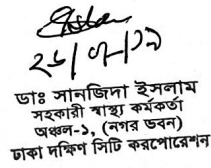 ২৬/০৭/১৯
ডাঃ সানজিদা ইসলাম
সহকারী স্বাস্থ্য কর্মকর্তা
অঞ্চল-১, (নগর ভবন)
ঢাকা দক্ষিণ সিটি করপোরেশন